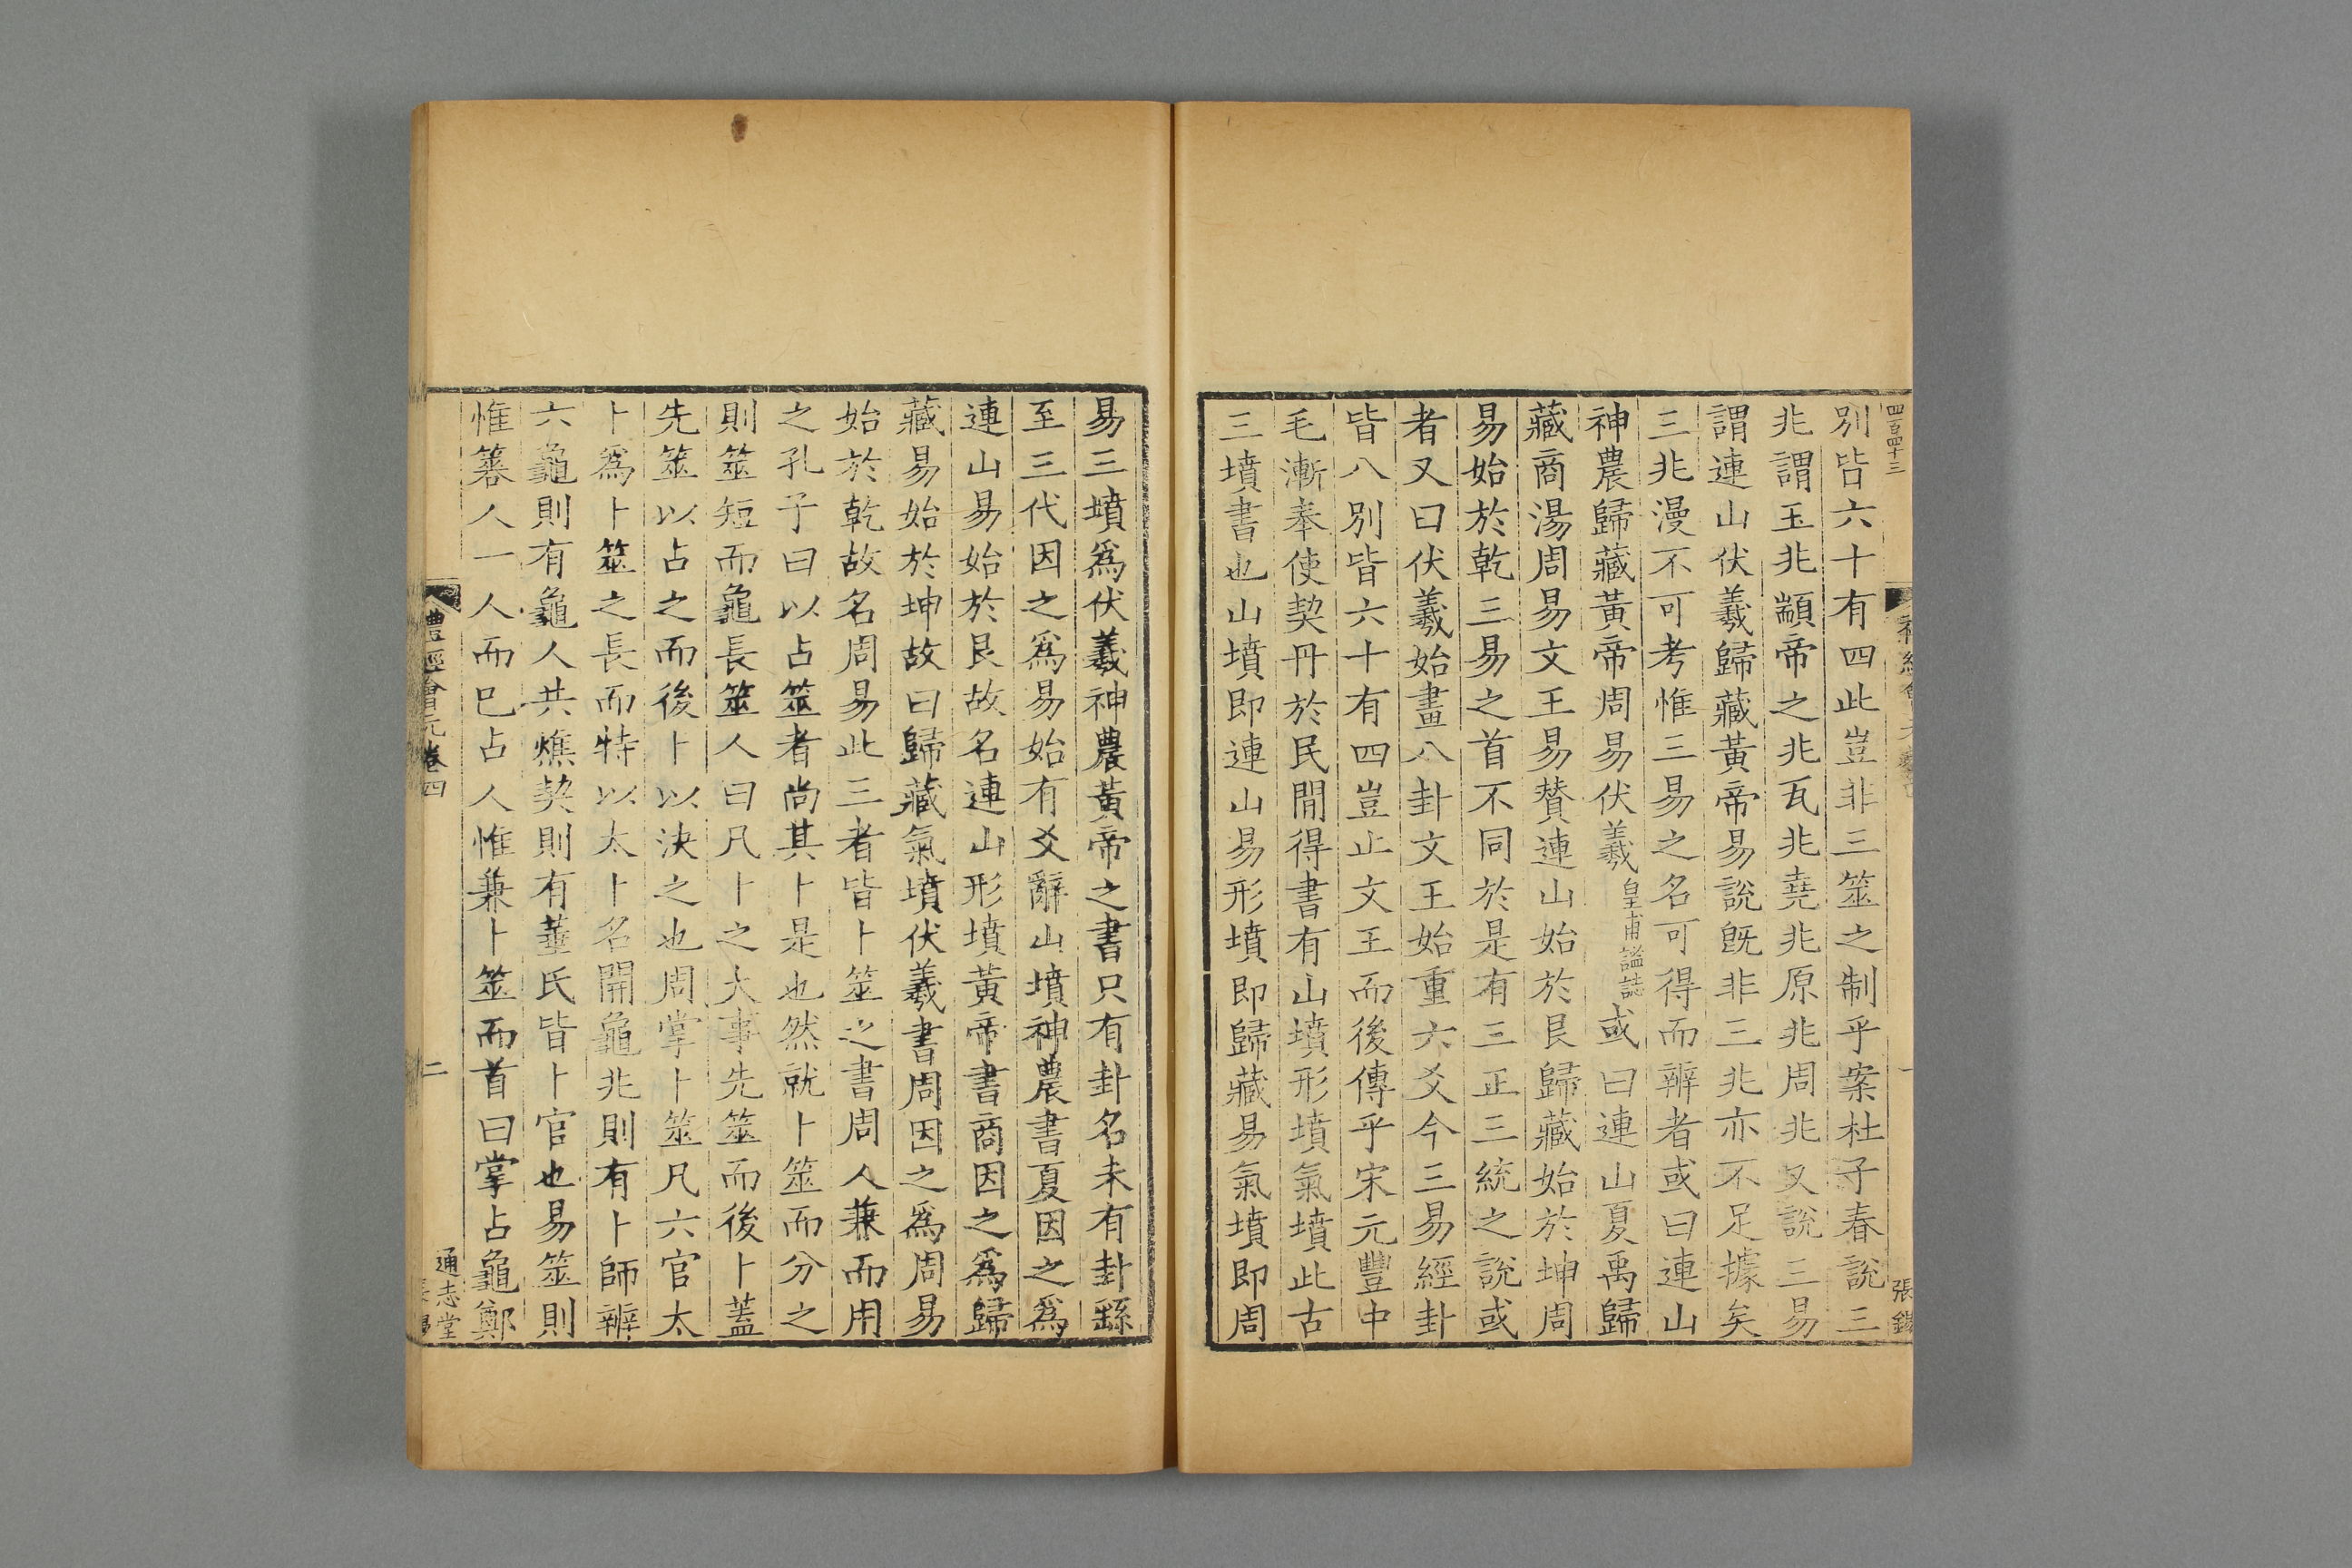 四百四十三
別皆六十有四此豈非三筮之制乎案杜子春說三
兆謂玉兆顓帝之兆瓦兆堯兆原兆周兆又說三易
謂連山伏羲歸藏黃帝易說旣非三兆亦不足據矣
三兆漫不可考惟三易之名可得而辨者或曰連山
神農歸藏黃帝周易伏羲皇甫謐誌或曰連山夏禹歸
藏商湯周易文王易贊連山始於艮歸藏始於坤周
易始於乾三易之首不同於是有三正三統之說或
者又曰伏羲始畫八卦文王始重六爻今三易經卦
皆八別皆六十有四豈止文王而後傳乎宋元豐中
毛漸奉使契丹於民間得書有山墳形墳氣墳此古
三墳書也山墳即連山易形墳即歸藏易氣墳即周
易三墳爲伏羲神農黃帝之書只有卦名未有卦繇
至三代因之爲易始有爻辭山墳神農書夏因之爲
連山易始於艮故名連山形墳黃帝書商因之爲歸
藏易始於坤故曰歸藏氣墳伏羲書周因之爲周易
始於乾故名周易此三者皆卜筮之書周人兼而用
之孔子曰以占筮者尚其卜是也然就卜筮而分之
則筮短而龜長筮人曰凡卜之大事先筮而後卜蓋
先筮以占之而後卜以決之也周掌卜筮凡六官太
卜爲卜筮之長而特以太卜名開龜兆則有卜師辨
六龜則有龜人共燋契則有菙氏皆卜官也易筮則
惟簭人一人而已占人惟兼卜筮而首曰掌占龜鄭
禮經會元卷四
二
通志堂